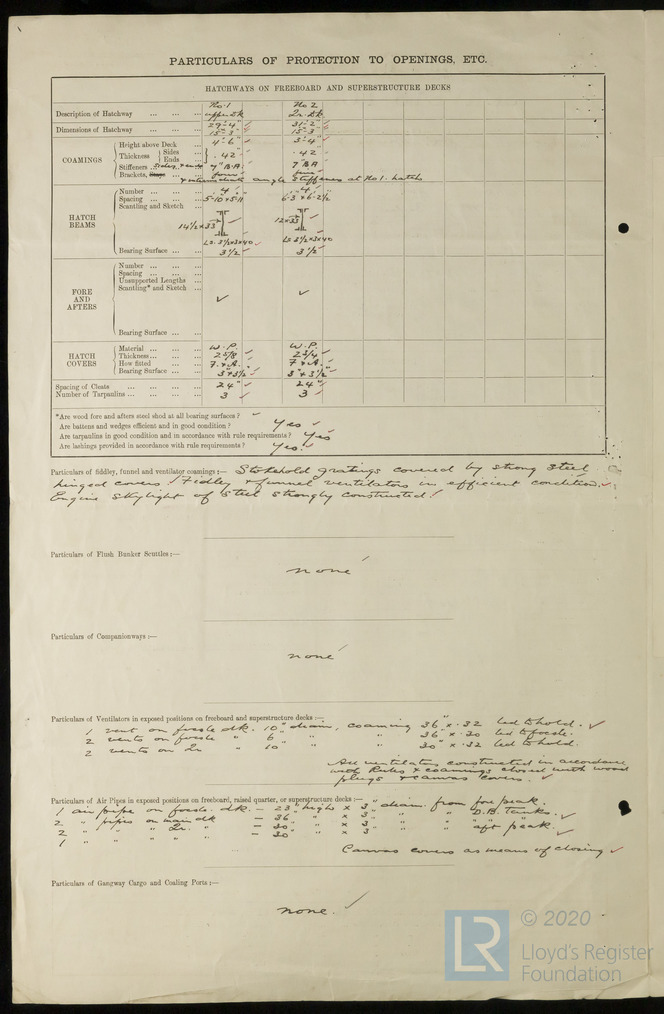 PARTICULARS OF PROTECTION TO OPENINGS, ETC.
HATCHWAYS ON FREEBOARD AND SUPERSTRUCTURE DECKS
No. 1 No 2
Description of Hatchway ... ... ... upper Dk Qr. Dk
Dimensions of Hatchway ... ... ... 29'-4" 31'-2"
15'-3" 15'-3"
COAMINGS
Height above Deck ... 4'-6" 3'-4"
Thickness { Sides ... Ends ... .42 .42
Stiffeners Sides & ends 7" B.A. 7" B.A.
Brackets,
& intermediate angle stiffeners at No 1. hatch
HATCH BEAMS
Number ... ... ... 4 4
Spacing ... ... ... 5-10 & 5-11 6-3 & 6-2½
Scantling and Sketch ...
14½ x 33 12 x 33
Ls. 3½x3x40 Ls 3½x3x40
Bearing Surface ... ... 3½" 3½"
FORE AND AFTERS
Number ... ... ...
Spacing ... ... ...
Unsupported Lengths ...
Scantling* and Sketch ...
✓ ✓
Bearing Surface ... ...
HATCH COVERS
Material ... ... ... W.P. W.P.
Thickness ... ... ... 2 5/8 2 3/4
How fitted ... ... F. & A. F & A
Bearing Surface ... ... 3" & 3½" 3" & 3½"
Spacing of Cleats ... ... ... ... 24" 24"
Number of Tarpaulins ... ... ... 3 3
*Are wood fore and afters steel shod at all bearing surfaces ?
Are battens and wedges efficient and in good condition ? Yes
Are tarpaulins in good condition and in accordance with rule requirements ? Yes
Are lashings provided in accordance with rule requirements ? Yes.
Particulars of fiddley, funnel and ventilator coamings :— Stokehold gratings covered by strong steel
hinged covers. Fidley & funnel ventilators in efficient condition.
Engine Skylight of steel strongly constructed.
Particulars of Flush Bunker Scuttles :—
none
Particulars of Companionways :—
none
Particulars of Ventilators in exposed positions on freeboard and superstructure decks :—
1 vent on focsle dk. 10" diam, coaming 36" x .32 led to hold.
2 vents on focsle " 6 " " 36" x .30 led to focsle.
2 vents on Qr " 10 " " 30" x .32 led to hold.
All ventilators constructed in accordance
with Rules & coamings closed with wood
plugs & canvas covers.
Particulars of Air Pipes in exposed positions on freeboard, raised quarter, or superstructure decks :—
1 air pipe on focsle dk. - 23" high x 3" diam. from fore peak.
2 " pipes on main dk - 36" " x 3" " " D.B. tanks.
2 " " " Qr. " - 30" " x 3" " "
1 " " " " " - 30" " x 3" " " aft peak.
Canvas covers as means of closing
Particulars of Gangway Cargo and Coaling Ports :—
none.
LR
© 2020
Lloyd's Register
Foundation